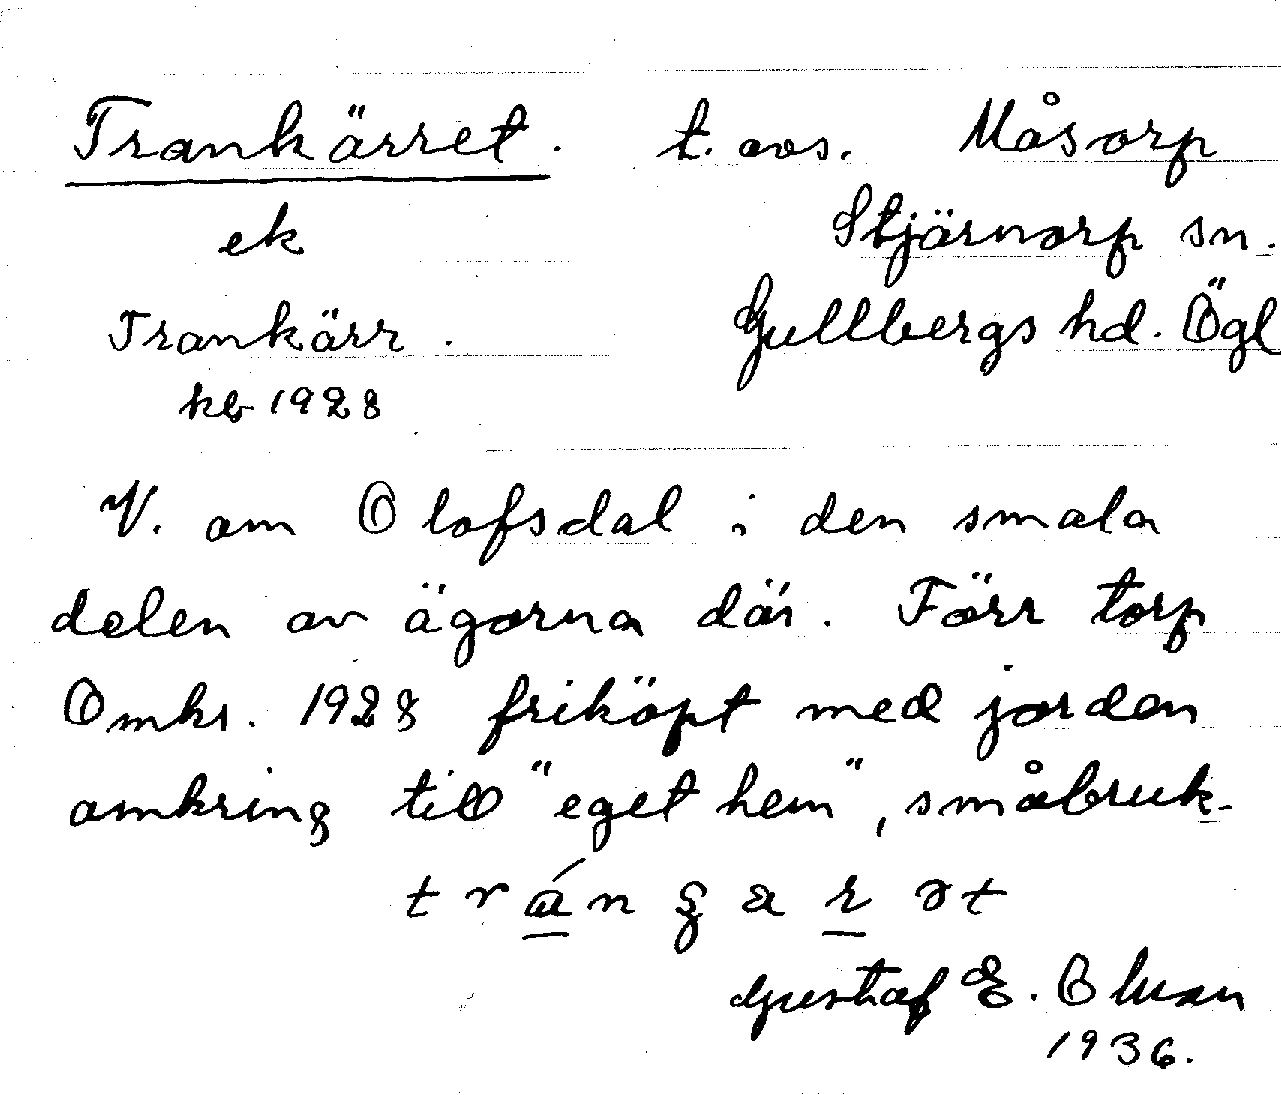 Trankärret. t. avs. Måsorp
ek Stjärnorp sn.
Trankärr. Gullbergs hd. Ögl
kb 1928
V. om Olofsdal i den smala
delen av ägorna där. Förr torp
Omkr. 1928 friköpt med jorden
omkring till "eget hem", småbruk-
Gustaf E. Olsson
1936.